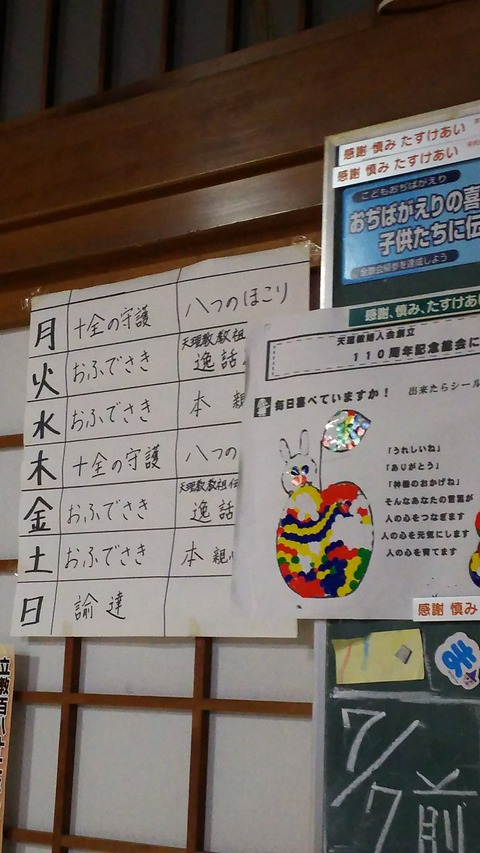 月 十全の守護 八つのほこり
火 おふでさき 天理教教祖 逸話
水 おふでさき 本 親
木 十全の守護 八つの
金 おふでさき 天理教教祖伝 逸話
土 おふでさき 本 親
日 諭達
感謝 慎み たすけあい
感謝 慎み たすけあい
こどもおぢばがえり
おぢばがえりの喜
子供たちに伝
全教会帰参を達成しよう
感謝、慎み、たすけあい
天理教婦人会創立
110周年記念総会に
毎日喜べていますか!
出来たらシール
「うれしいね」
「ありがとう」
「神様のおかげね」
そんなあなたの言葉が
人の心をつなぎます
人の心を元気にします
人の心を育てます
感謝 慎み
ま
7/7 前
立教百八十